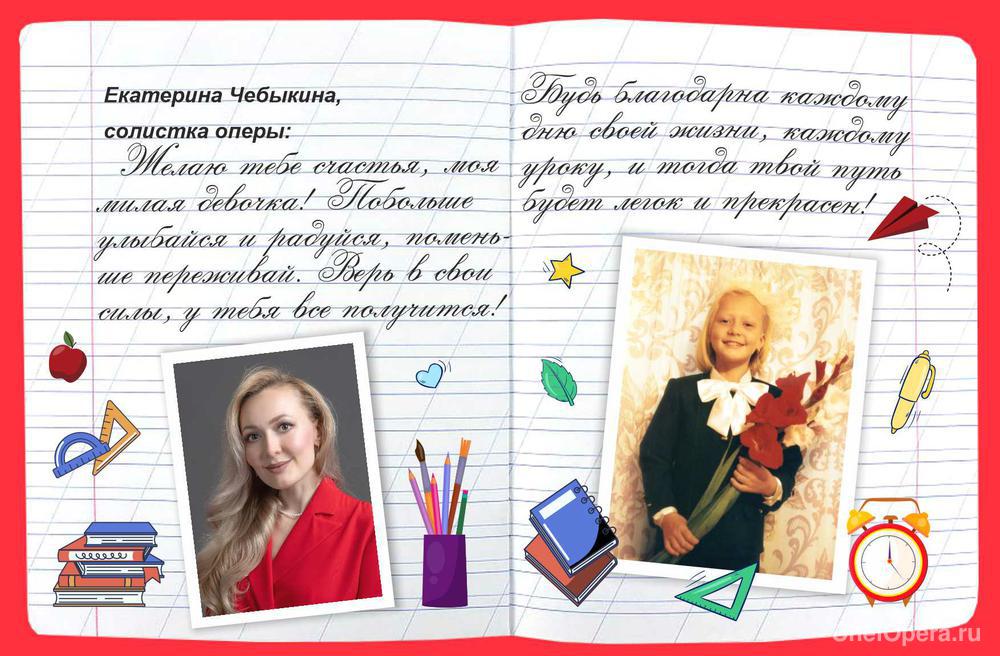 Екатерина Чебыкина,
солистка оперы:
Желаю тебе счастья, моя
милая девочка! Побольше
улыбайся и радуйся, помень-
ше переживай. Верь в свои
силы, у тебя все получится!
Будь благодарна каждому
дню своей жизни, каждому
уроку, и тогда твой путь
будет легок и прекрасен!
ChelOpera.ru